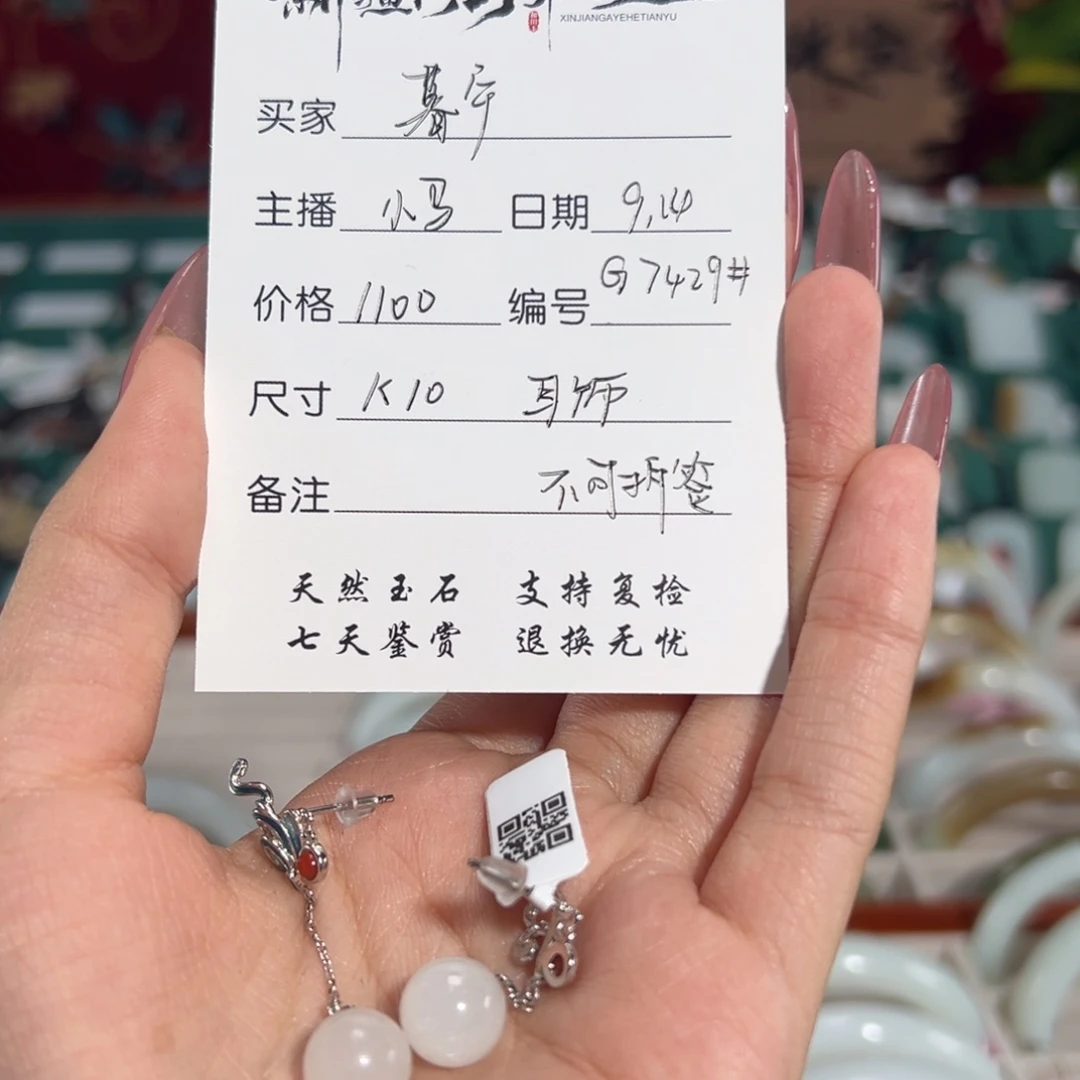 XINJIANGAYEHETIANYU
买家 暮宇
主播 小马 日期 9.14
价格 1100 编号 G7429#
尺寸 K10 耳饰
备注 不可拆签
天然玉石 支持复检
七天鉴赏 退换无忧